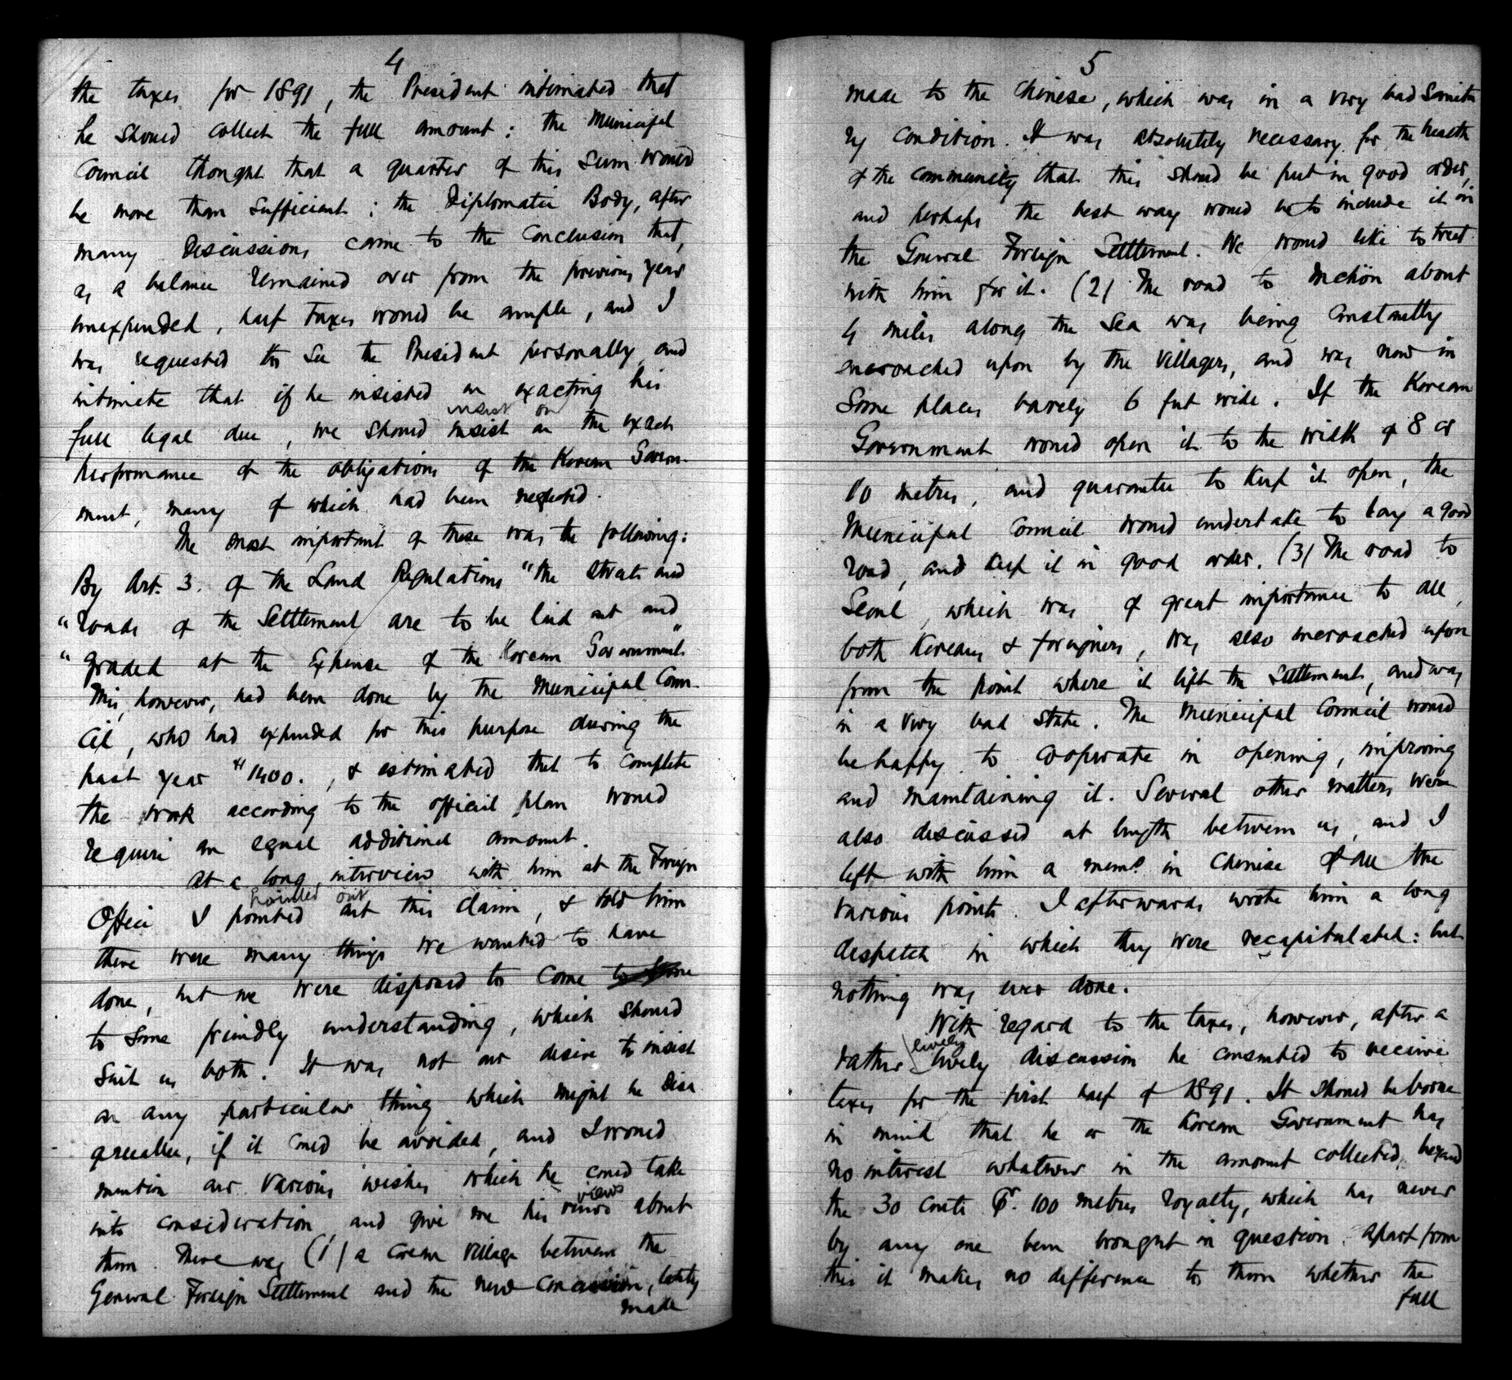 4
the taxes for 1891, the President intimated that
he should collect the full amount: the Municipal
Council thought that a quarter of this sum would
be more than sufficient: the Diplomatic Body, after
many discussions came to the conclusion that,
as a balance remained over from the previous year
unexpended, half taxes would be ample, and I
was requested to see the President personally and
intimate that if he insisted on exacting his
insist on
full legal due, we should insist on the exact
performance of the obligations of the Korean Govern-
ment, many of which had been neglected.
The most important of these was the following:
By Art. 3. of the Land Regulations "the streets and
"roads of the Settlement are to be laid out and
"graded at the Expense of the Korean Government."
This, however, had been done by the Municipal Coun-
cil, who had expended for this purpose during the
past year $1400., & estimated that to complete
the work according to the official plan would
require an equal additional amount.
At a long interview with him at the Foreign
pointed out
Office I pointed out this claim, & told him
there were many things we wanted to have
done, but we were disposed to come to some
to some friendly understanding, which should
suit us both. It was not our desire to insist
on any particular thing which might be disa
greeable, if it could be avoided, and I would
mention our various wishes which he could take
views
into consideration, and give me his views about
them. There was (1) a Corean village between the
General Foreign Settlement and the new concession, lately
made
5
made to the Chinese, which was in a very bad Sanita
ry condition. It was absolutely necessary for the health
of the community that this should be put in good order,
and perhaps the best way would be to include it in
the General Foreign Settlement. We would like to treat
with him for it. (2) The road to Inchön about
4 miles along the Sea was being constantly
encroached upon by the villagers, and was now in
some places barely 6 feet wide. If the Korean
Government would open it to the width of 8 or
10 metres, and guarantee to keep it open, the
Municipal Council would undertake to lay a good
road, and keep it in good order. (3) The road to
Seoul, which was of great importance to all,
both Koreans & foreigners, was also encroached upon
from the point where it left the Settlement, and was
in a very bad state. The Municipal Council would
be happy to cooperate in opening, improving
and maintaining it. Several other matters were
also discussed at length between us, and I
left with him a memo. in Chinese of all the
various points. I afterwards wrote him a long
despatch in which they were recapitulated: but
nothing was ever done.
With regard to the taxes, however, after a
lively
rather lively discussion he consented to receive
taxes for the first half of 1891. It should be borne
in mind that he or the Korean Government has
no interest whatever in the amount collected, beyond
the 30 cents pr. 100 metres royalty, which has never
by any one been brought in question. Apart from
this it makes no difference to them whether the
full